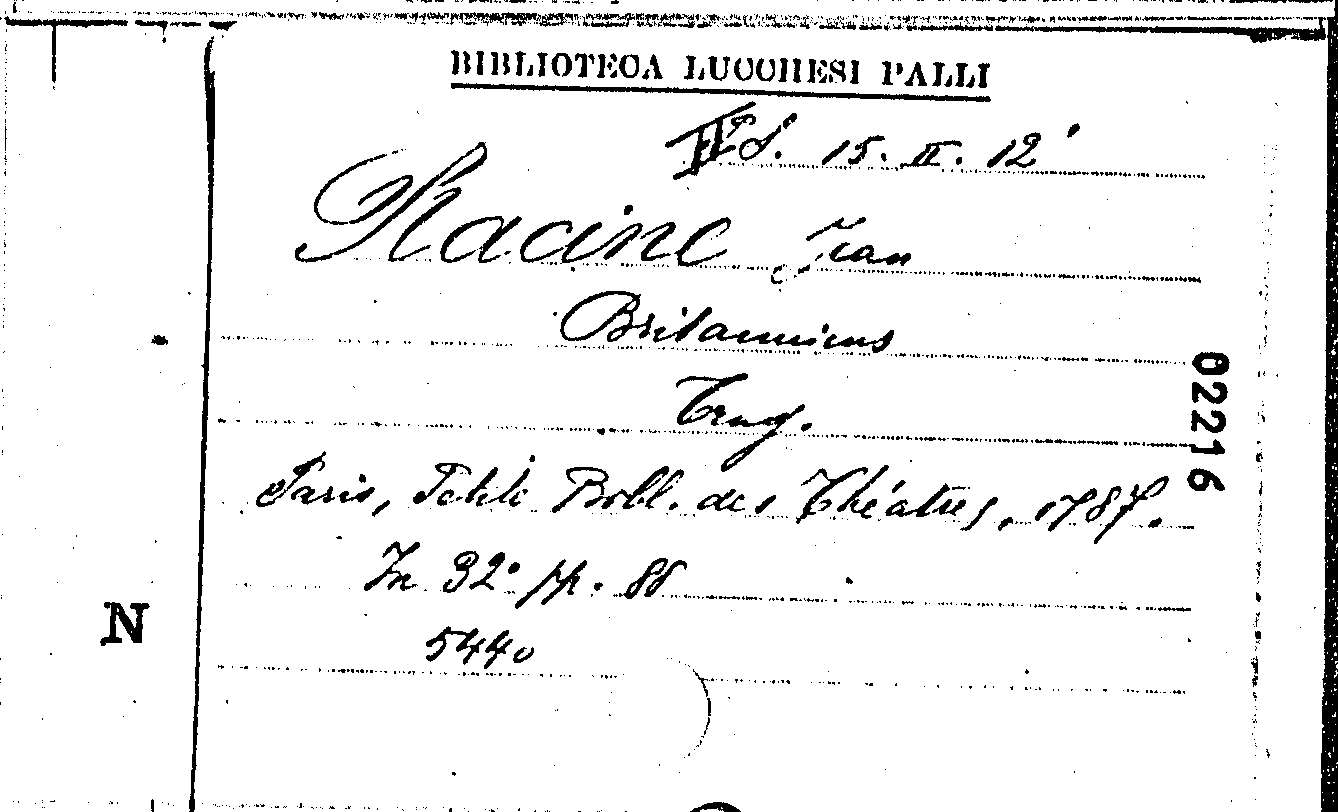 BIBLIOTECA LUCCHESI PALLI
S. 15. II. 12
Racine Jean
Britannicus
Trag.
Paris, Petite Bibl. des Théatres, 1787.
In 32° pp. 88
5440
N
02216